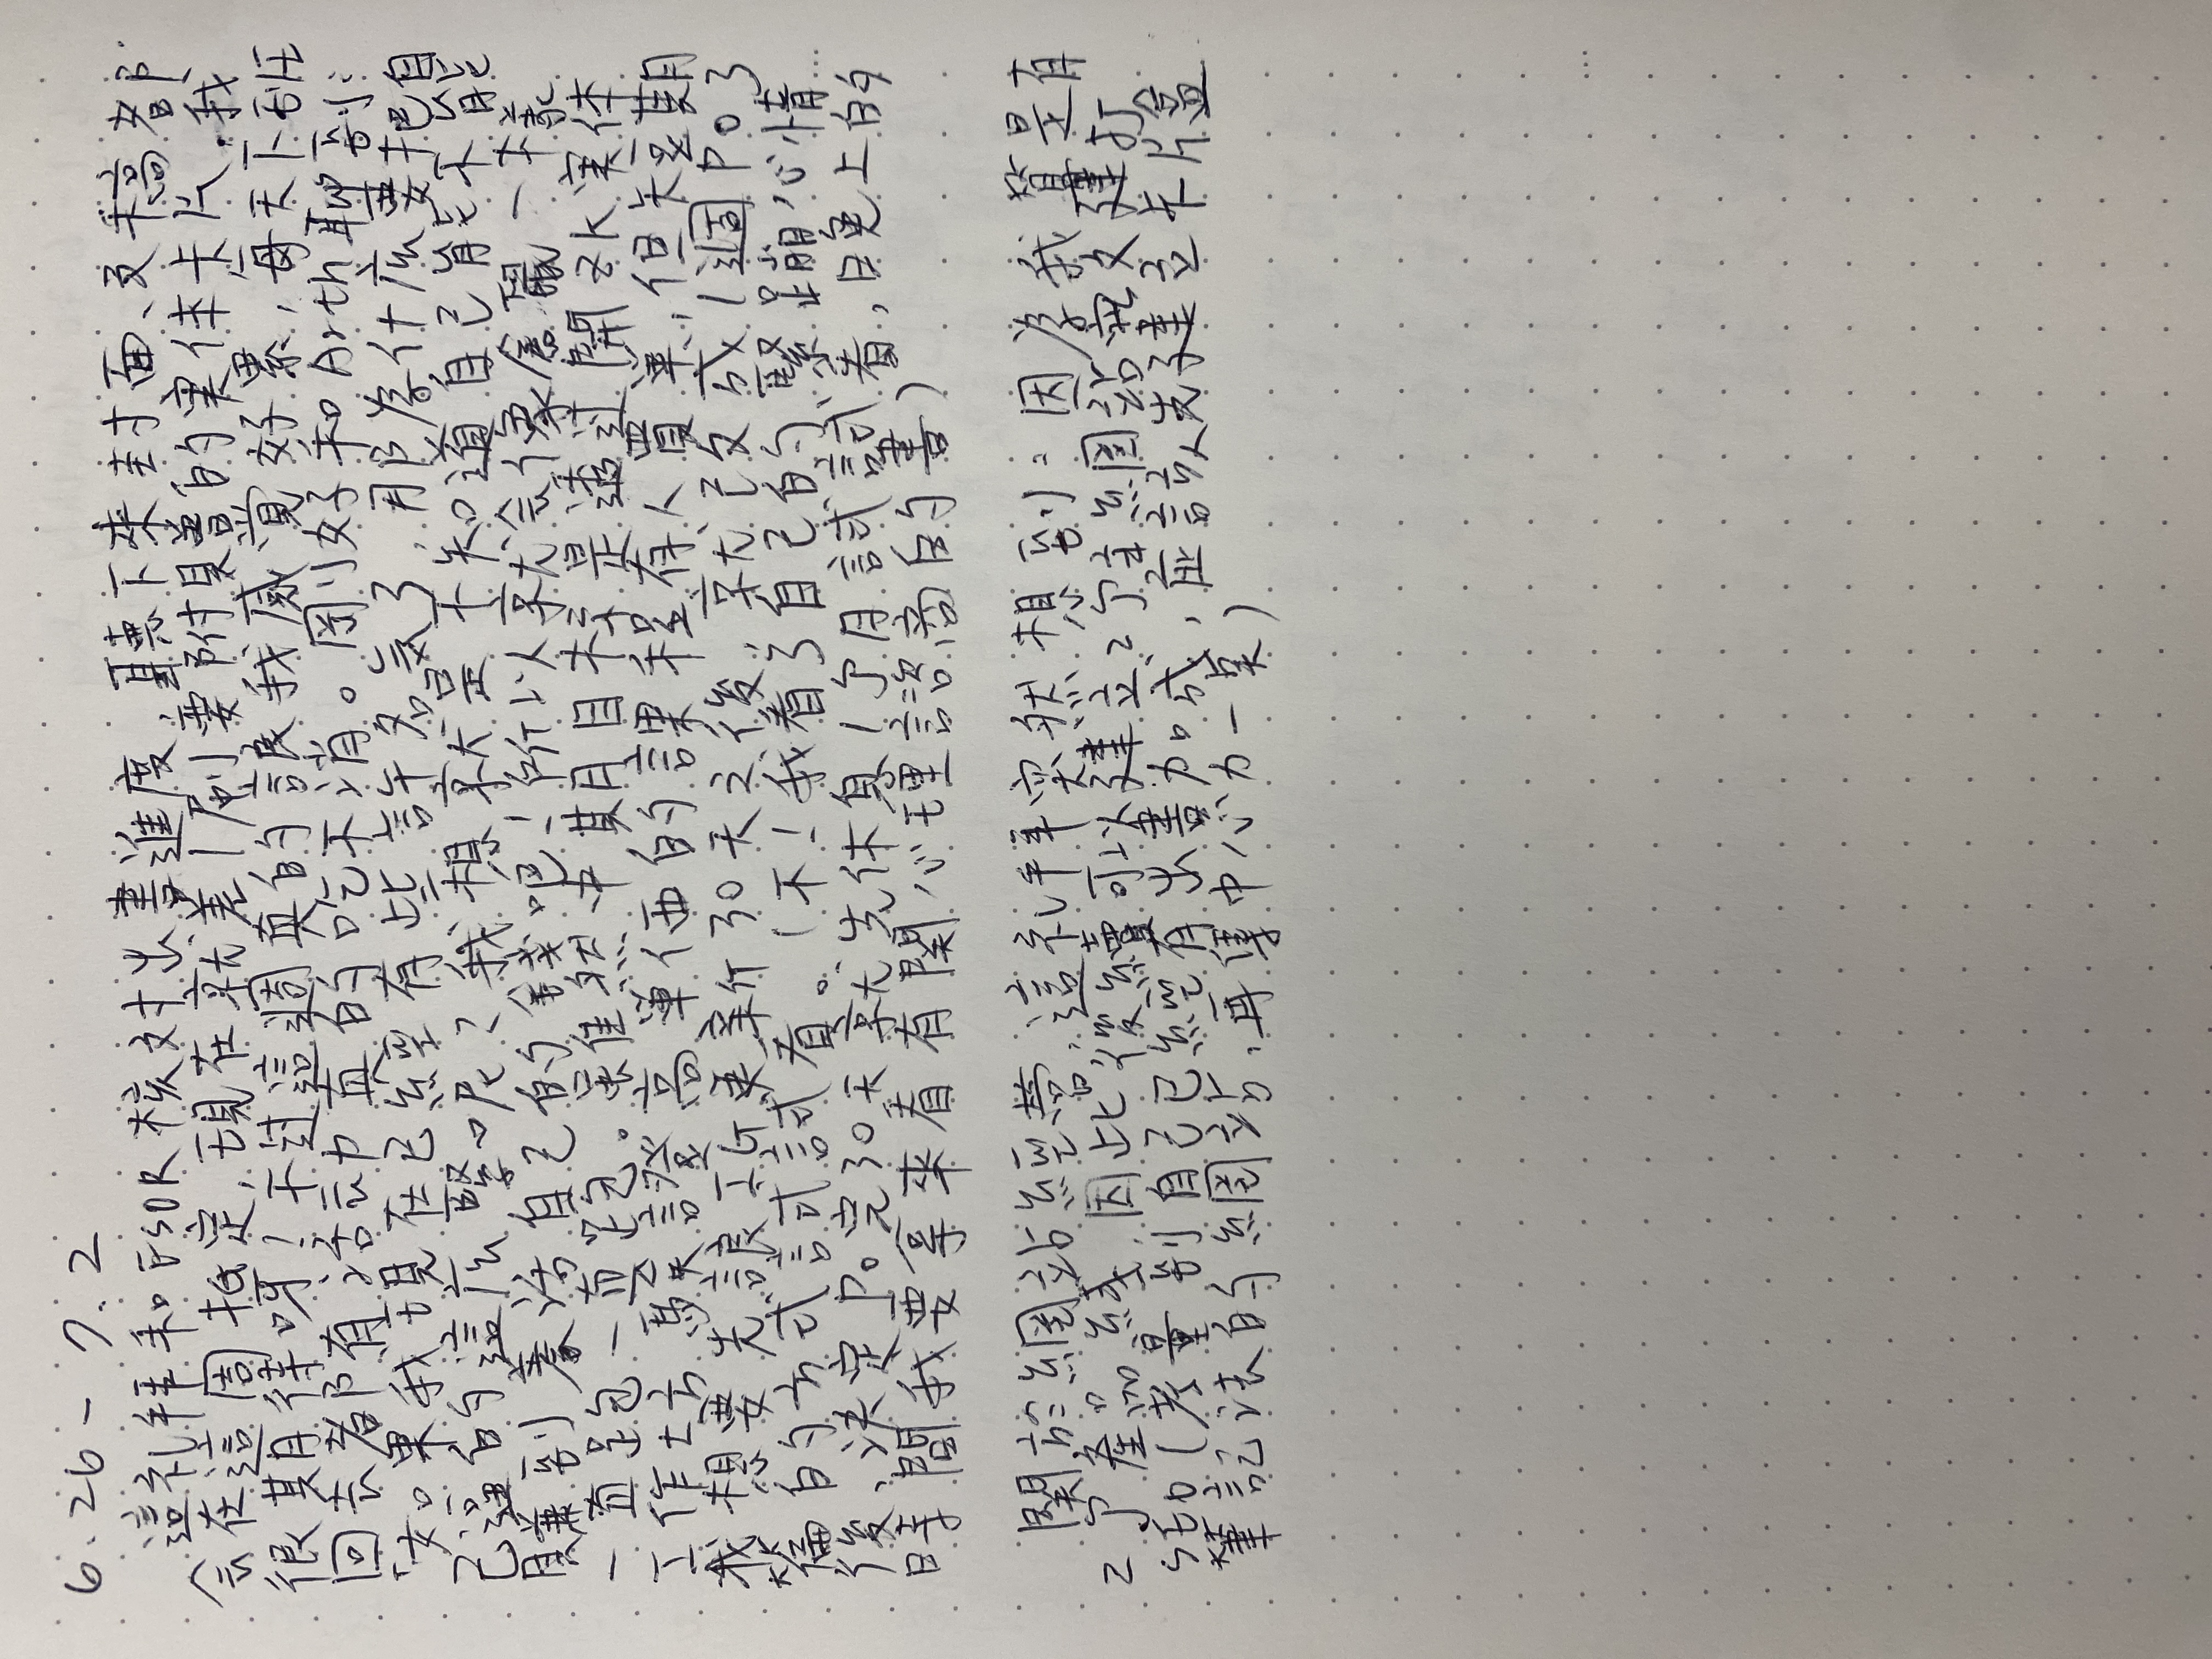 6.26 - 7.2
這礼拜和 ESOR 核对出書進度,聽下來封面、文稿都
会在這周抵定,現在就差1刷要附贈的実体卡片.我
很期待呀!不过這週真的讓我感覚好累,每天下班
回去都有活动真的吃不消。剛好和Arth聊到:
「如果我現在已經有些許名気了,那為什広要把自
己逼的這広緊呢?我想就是不知道自己能不能
賺到養活自己的錢吧!所以就会像倉鼠一樣
一直跑一直跑。虽然中期目标是透过開ZK実体
工作坊驗證高單価的課程有人買單,但短期
我想要先讓IG更新30天之後,就改成1週Po3
篇的方式試試看。(不!我看了自己的緊蹦心情
後,決定Po完30天就先休息1个月試試看,晚上的
時間我要拿來看有関心理諮商的書)
関於網站経營,這礼拜突然想到:因為我算是有
2个產品線,因此後續可以建立2个網站宛文建打
SEO(考量到自己已經有出書加成,应該先建立卡片盒
筆記法的網站,再集中心力一実)